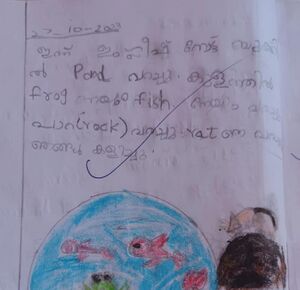 27-10-2023
ഇന്ന് ഇംഗ്ലീഷ് നോട്ട് ബുക്കി
ൽ Pond വരച്ചു. കുളത്തിൽ
frog നയും fish നയും വരച്ചു
പാറ(rock) വരച്ചു. rat നെ വര
ഞങ്ങൾ കളിച്ചു.